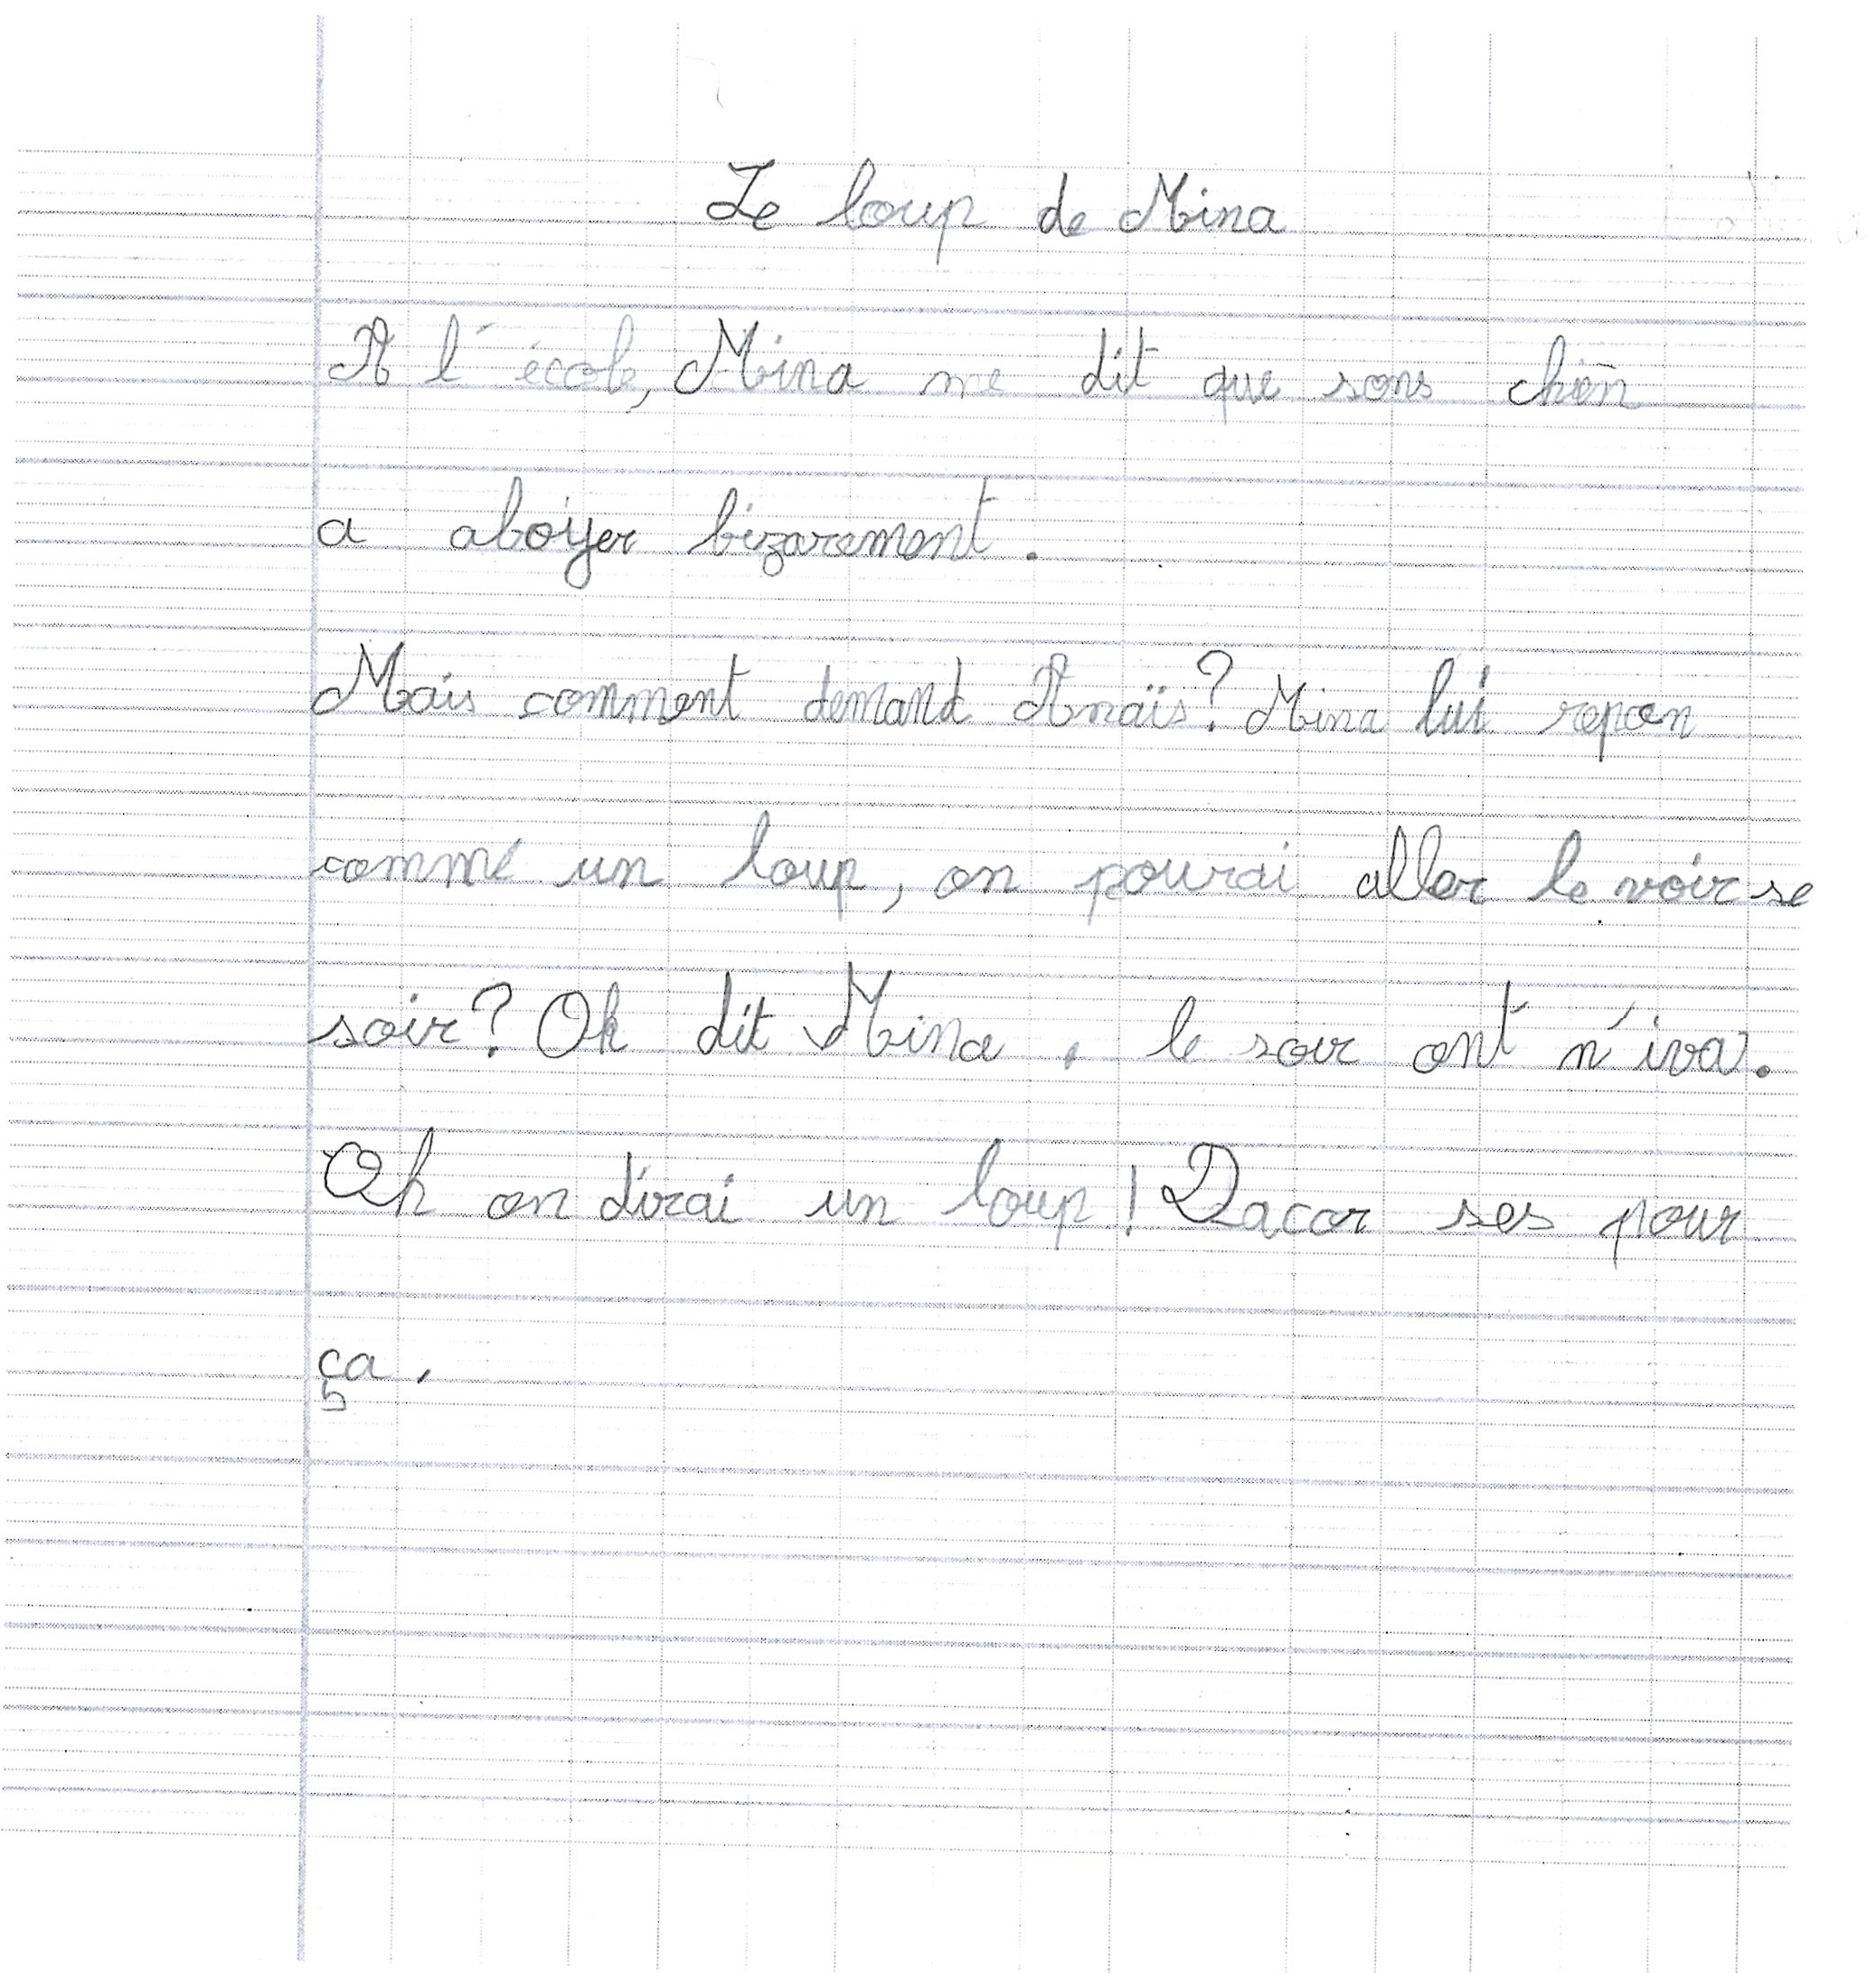 Le loup de Mina
A l'école, Mina me dit que sons chien
a aboyer bizarement.
Mais comment demand Anaïs? Mina lui repon
comme un loup, on pourai aller le voir se
soir? Oh dit Mina, le soir ont n'iva.
Oh on dirai un loup! Dacor ses pour
ça.